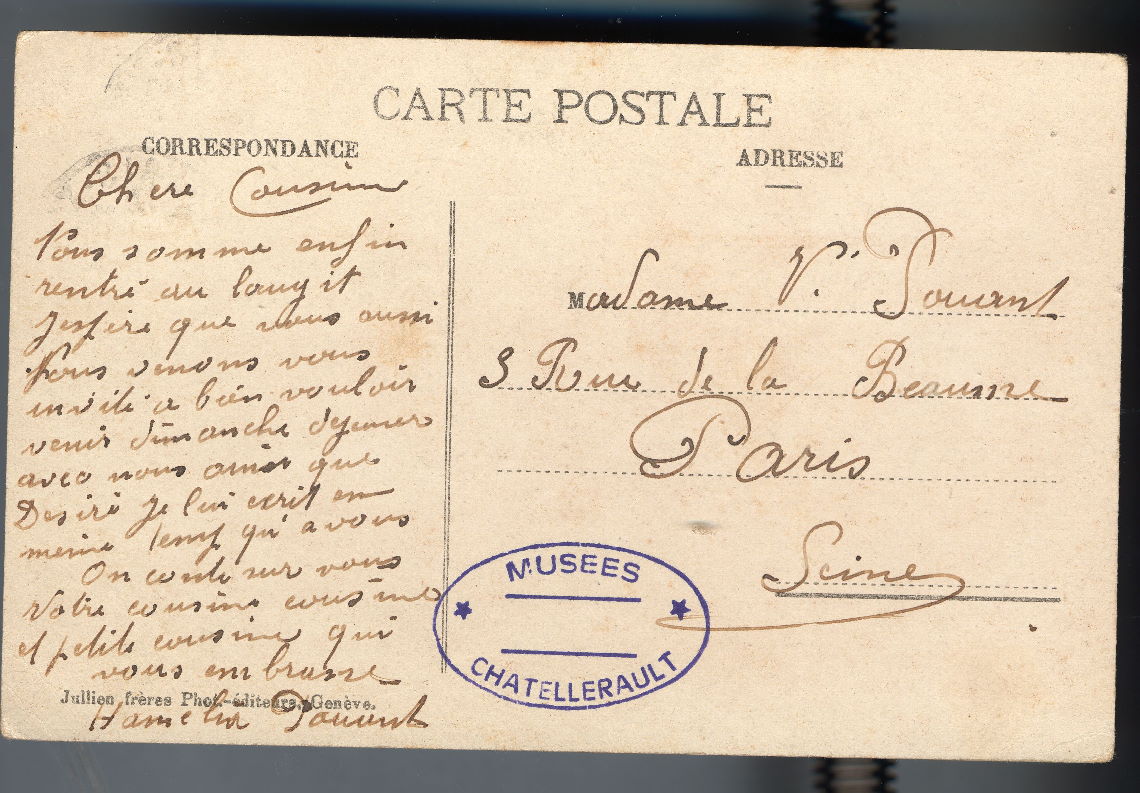 CARTE POSTALE
CORRESPONDANCE
Chere Cousine
Nous somme enfin
rentré au
Jespire que vous aussi
Nous venons vous
invité a bien vouloir
venir dimanche dejeuner
avec nous ainsi que
Desiré Je lui ecrit en
meme temp qu'a vous
On conte sur vous
Votre cousine
et petite cousine qui
vous embrasse
Jullien frères Phot.-éditeurs, Genève.
ADRESSE
Madame V. Douant
3 Rue de la Beaume
Paris
Seine
MUSEES
CHATELLERAULT